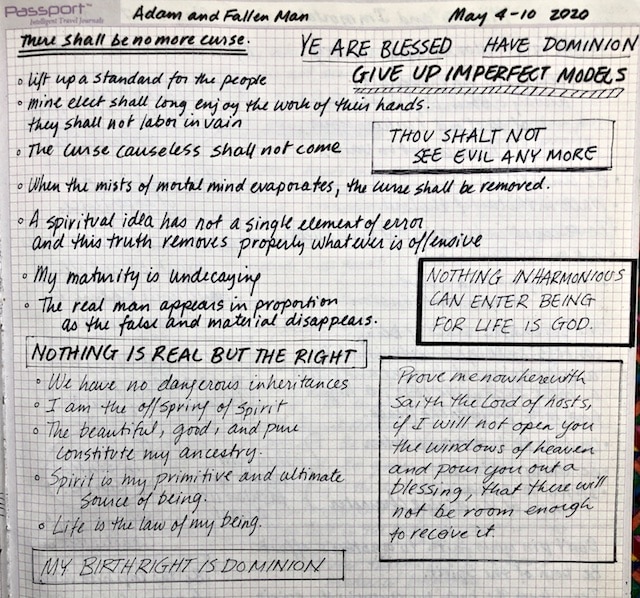 Passport™
Intelligent Travel Journals
Adam and Fallen Man
May 4-10 2020
There shall be no more curse.
YE ARE BLESSED HAVE DOMINION
GIVE UP IMPERFECT MODELS
◦ lift up a standard for the people
◦ mine elect shall long enjoy the work of their hands.
they shall not labor in vain
THOU SHALT NOT
SEE EVIL ANY MORE
◦ The curse causeless shall not come
◦ When the mists of mortal mind evaporates, the curse shall be removed.
◦ A spiritual idea has not a single element of error
and this truth removes properly whatever is offensive
◦ My maturity is undecaying
◦ The real man appears in proportion
as the false and material disappears.
NOTHING INHARMONIOUS
CAN ENTER BEING
FOR LIFE IS GOD.
NOTHING IS REAL BUT THE RIGHT
◦ We have no dangerous inheritances
◦ I am the offspring of Spirit
◦ The beautiful, good, and pure
constitute my ancestry.
◦ Spirit is my primitive and ultimate
source of being.
◦ Life is the law of my being.
Prove me now herewith
saith the Lord of hosts,
if I will not open you
the windows of heaven
and pour you out a
blessing, that there will
not be room enough
to receive it.
MY BIRTHRIGHT IS DOMINION